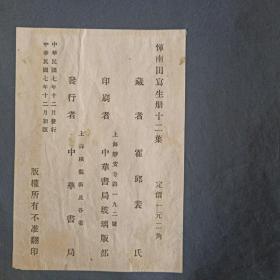 惲南田寫生册十二葉　定價一元二角
藏者　霍邱裴氏
印刷者　上海靜安寺路一九二號　中華書局玻璃版部
發行者　上海棋盤街及各省　中華書局
中華民國七年十二月發行
中華民國七年十二月初版
版權所有不准翻印